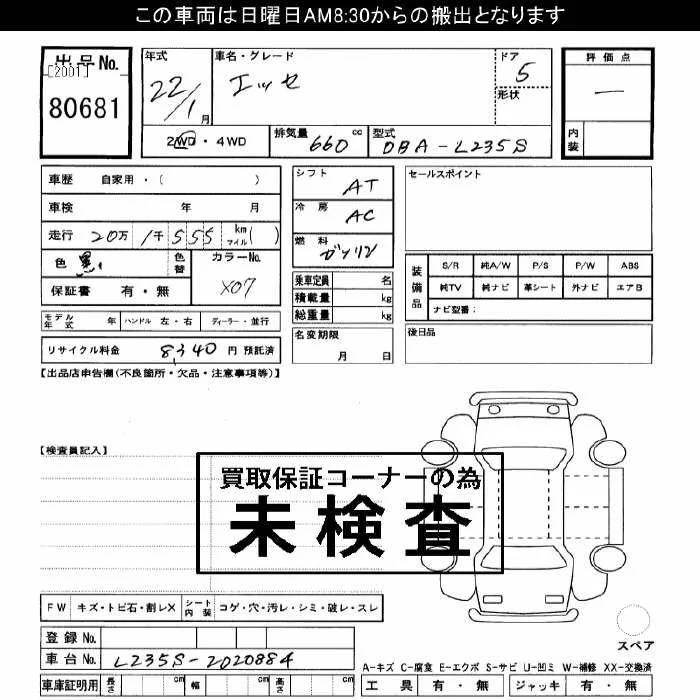 この車両は日曜日AM8:30からの搬出となります
出品No.
[2001]
80681
年式
22/1月
車名・グレード
エッセ
ドア
5
形状
評価点
—
内装
2WD・4WD
排気量 660 cc
型式 DBA-L235S
車歴 自家用・( )
車検 年 月
走行 20万 1千 555 km マイル( )
色 黒
色替
カラーNo.
X07
保証書 有・無
モデル年式 年 ハンドル 左・右 ディーラー・並行
リサイクル料金 8,340 円 預託済
シフト AT
冷房 AC
燃料 ガソリン
乗車定員 名
積載量 kg
総重量 kg
名変期限
月 日
セールスポイント
装備品
S/R 純A/W P/S P/W ABS
純TV 純ナビ 革シート 外ナビ エアB
ナビ型番：
後日品
【出品店申告欄(不良箇所・欠品・注意事項等)】
【検査員記入】
買取保証コーナーの為
未検査
FW キズ・トビ石・割レX シート内装 コゲ・穴・汚レ・シミ・破レ・スレ
登録No.
車台No. L235S-2020884
車庫証明用 長さ cm 幅 cm 高さ cm
スペア
A-キズ C-腐食 E-エクボ S-サビ U-凹ミ W-補修 XX-交換済
工具 有・無 ジャッキ 有・無